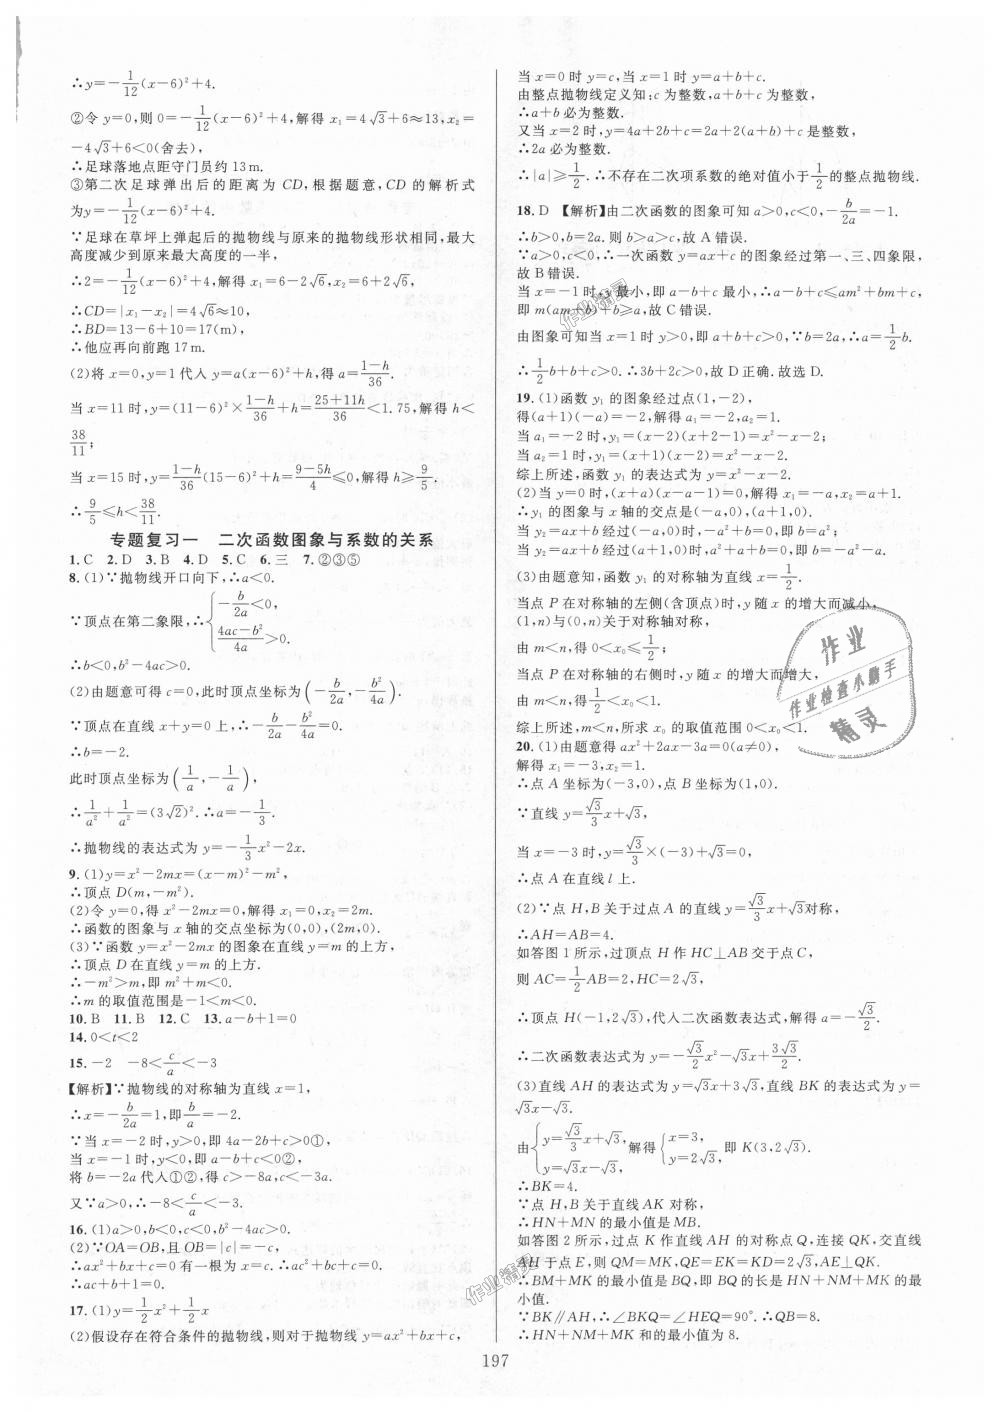 ∴y=-1/12(x-6)²+4.
②令 y=0,则 0=-1/12(x-6)²+4,解得 x₁=4√3+6≈13,x₂=
-4√3+6<0(舍去),
∴足球落地点距守门员约 13 m.
③第二次足球弹出后的距离为 CD,根据题意,CD 的解析式
为y=-1/12(x-6)²+4.
∵足球在草坪上弹起后的抛物线与原来的抛物线形状相同,最大
高度减少到原来最大高度的一半,
∴2=-1/12(x-6)²+4,解得 x₁=6-2√6,x₂=6+2√6,
∴CD=|x₁-x₂|=4√6≈10,
∴BD=13-6+10=17(m),
∴他应再向前跑 17 m.
(2)将 x=0,y=1 代入 y=a(x-6)²+h,得 a=(1-h)/36.
当 x=11 时,y=(11-6)²×(1-h)/36+h=(25+11h)/36<1.75,解得 h<
38/11;
当 x=15 时,y=(1-h)/36(15-6)²+h=(9-5h)/4≤0,解得 h≥9/5.
∴9/5≤h<38/11.
专题复习一 二次函数图象与系数的关系
1.C 2.D 3.B 4.D 5.C 6.三 7.②③⑤
8.(1)∵抛物线开口向下,∴a<0.
∵顶点在第二象限,∴{-b/2a<0, (4ac-b²)/4a>0.
∴b<0,b²-4ac>0.
(2)由题意可得 c=0,此时顶点坐标为(-b/2a,-b²/4a).
∵顶点在直线 x+y=0 上,∴-b/2a-b²/4a=0.
∴b=-2.
此时顶点坐标为(1/a,-1/a),
∴1/a²+1/a²=(3√2)².∴a=-1/3.
∴抛物线的表达式为 y=-1/3x²-2x.
9.(1)y=x²-2mx=(x-m)²-m²,
∴顶点 D(m,-m²).
(2)令 y=0,得 x²-2mx=0,解得 x₁=0,x₂=2m.
∴函数的图象与 x 轴的交点坐标为(0,0),(2m,0).
(3)∵函数 y=x²-2mx 的图象在直线 y=m 的上方,
∴顶点 D 在直线 y=m 的上方.
∴-m²>m,即 m²+m<0.
∴m 的取值范围是-1<m<0.
10.B 11.B 12.C 13.a-b+1=0
14.0<t<2
15.-2 -8<c/a<-3
【解析】∵抛物线的对称轴为直线 x=1,
∴x=-b/2a=1,即b/a=-2.
∵当 x=-2 时,y>0,即 4a-2b+c>0①,
当 x=-1 时,y<0,即 a-b+c<0②,
将 b=-2a 代入①②,得 c>-8a,c<-3a.
又∵a>0,∴-8<c/a<-3.
16.(1)a>0,b<0,c<0,b²-4ac>0.
(2)∵OA=OB,且 OB=|c|=-c,
∴ax²+bx+c=0 有一根为 x=c.∴ac²+bc+c=0.
∴ac+b+1=0.
17.(1)y=1/2x²+1/2x
(2)假设存在符合条件的抛物线,则对于抛物线 y=ax²+bx+c,
当 x=0 时 y=c,当 x=1 时 y=a+b+c.
由整点抛物线定义知:c 为整数,a+b+c 为整数,
∴a+b 必为整数.
又当 x=2 时,y=4a+2b+c=2a+2(a+b)+c 是整数,
∴2a 必为整数.
∴|a|≥1/2.∴不存在二次项系数的绝对值小于1/2的整点抛物线.
18.D 【解析】由二次函数的图象可知 a>0,c<0,-b/2a=-1.
∴b>0,b=2a.则 b>a>c,故 A 错误.
∵a>0,c<0,∴一次函数 y=ax+c 的图象经过第一、三、四象限,
故 B 错误.
当 x=-1 时,y 最小,即 a-b+c 最小,∴a-b+c≤am²+bm+c,
即 m(am+b)+b≥a,故 C 错误.
由图象可知当 x=1 时 y>0,即 a+b+c>0,∵b=2a,∴a=1/2b.
∴1/2b+b+c>0.∴3b+2c>0,故 D 正确.故选 D.
19.(1)函数 y₁ 的图象经过点(1,-2),
得(a+1)(-a)=-2,解得 a₁=-2,a₂=1.
当 a₁=-2 时,y₁=(x-2)(x+2-1)=x²-x-2;
当 a₂=1 时,y₁=(x+1)(x-2)=x²-x-2.
综上所述,函数 y₁ 的表达式为 y=x²-x-2.
(2)当 y=0 时,(x+a)(x-a-1)=0,解得 x₁=-a,x₂=a+1.
∴y₁ 的图象与 x 轴的交点是(-a,0),(a+1,0).
当 y₂=ax+b 经过(-a,0)时,-a²+b=0,即 b=a²;
当 y₂=ax+b 经过(a+1,0)时,a²+a+b=0,即 b=-a²-a.
(3)由题意知,函数 y₁ 的对称轴为直线 x=1/2.
当点 P 在对称轴的左侧(含顶点)时,y 随 x 的增大而减小,
(1,n)与(0,n)关于对称轴对称,
由 m<n,得 0<x₀≤1/2;
当点 P 在对称轴的右侧时,y 随 x 的增大而增大,
由 m<n,得1/2<x₀<1.
综上所述,m<n,所求 x₀ 的取值范围 0<x₀<1.
20.(1)由题意得 ax²+2ax-3a=0(a≠0),
解得 x₁=-3,x₂=1.
∴点 A 坐标为(-3,0),点 B 坐标为(1,0).
∵直线 y=√3/3x+√3,
当 x=-3 时,y=√3/3×(-3)+√3=0,
∴点 A 在直线 l 上.
(2)∵点 H,B 关于过点 A 的直线 y=√3/3x+√3对称,
∴AH=AB=4.
如答图 1 所示,过顶点 H 作 HC⊥AB 交于点 C,
则 AC=1/2AB=2,HC=2√3,
∴顶点 H(-1,2√3),代入二次函数表达式,解得 a=-√3/2.
∴二次函数表达式为 y=-√3/2x²-√3x+3√3/2.
(3)直线 AH 的表达式为 y=√3x+3√3,直线 BK 的表达式为 y=
√3x-√3.
由{y=√3/3x+√3, y=√3x-√3, 解得{x=3, y=2√3. 即 K(3,2√3).
∴BK=4.
∵点 H,B 关于直线 AK 对称,
∴HN+MN 的最小值是 MB.
如答图 2 所示,过点 K 作直线 AH 的对称点 Q,连接 QK,交直线
AH 于点 E,则 QM=MK,QE=EK=KD=2√3,AE⊥QK.
∴BM+MK 的最小值是 BQ,即 BQ 的长是 HN+NM+MK 的最
小值.
∵BK∥AH,∴∠BKQ=∠HEQ=90°.∴QB=8.
∴HN+NM+MK 和的最小值为 8.
作业
作业检查小助手
精灵
作业精灵
作业精灵
197